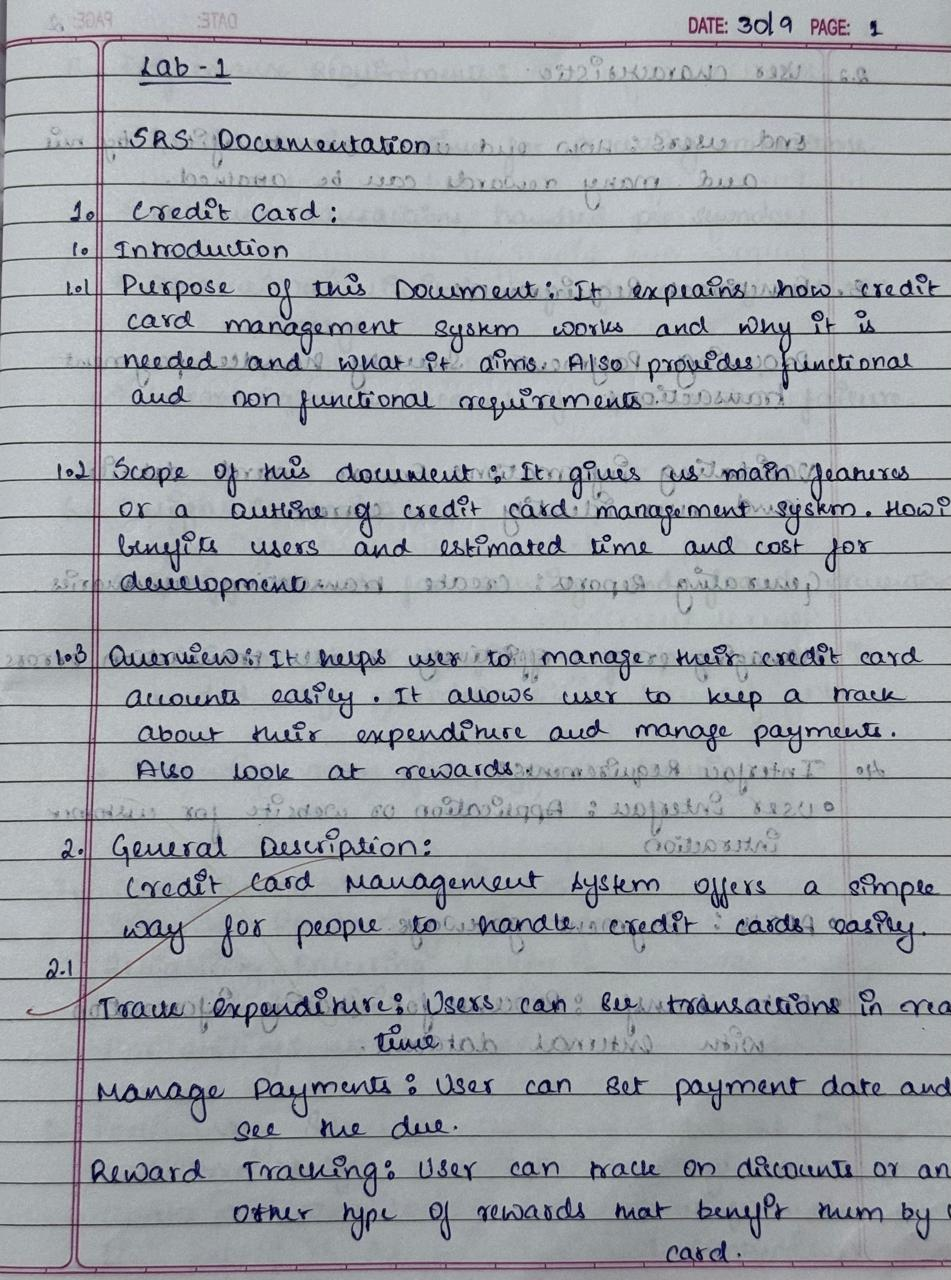 DATE: 30/9 PAGE: 1
Lab - 1
SRS Documentation
1. Credit Card:
1. Introduction
1.1 Purpose of this Document: It explains how credit
card management system works and why it is
needed and what it aims. Also provides functional
and non functional requirements.
1.2 Scope of this document: It gives us main features
or a outline of credit card management system. How
benefits users and estimated time and cost for
development
1.3 Overview: It helps user to manage their credit card
accounts easily. It allows user to keep a track
about their expenditure and manage payments.
Also look at rewards.
2. General Description:
Credit Card Management System offers a simple
way for people to handle credit cards easily.
2.1
Track expenditure: Users can see transactions in rea
time.
Manage Payments: User can set payment date and
see the due.
Reward Tracking: User can track on discounts or an
other type of rewards that benefit them by
card.